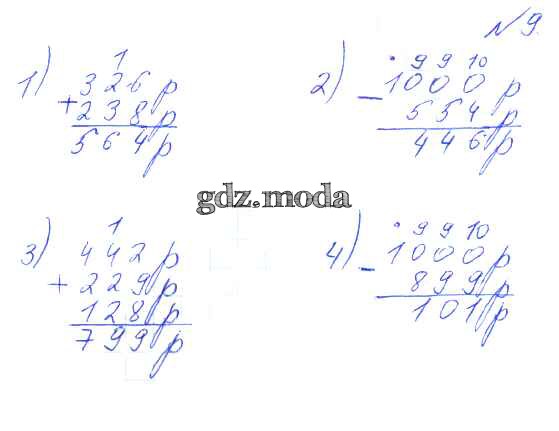 № 9.
1) 1
326 р
+ 238 р
564 р
2) 9 9 10
– 1000 р
554 р
446 р
gdz.moda
3) 1
442 р
+ 229 р
128 р
799 р
4) 9 9 10
– 1000 р
899 р
101 р